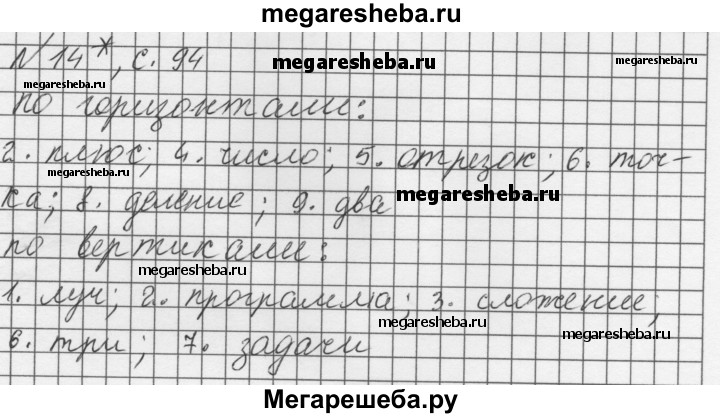 megaresheba.ru
N 14*, с. 94
megaresheba.ru
megaresheba.ru
megaresheba.ru
по горизонтали:
2. плюс; 4. число; 5. отрезок; 6. точ-
megaresheba.ru
ка; 8. деление; 9. два
megaresheba.ru
по вертикали:
megaresheba.ru
1. луч; 2. программа; 3. сложение;
megaresheba.ru
megaresheba.ru
6. три; 7. задачи
Мегарешеба.ру